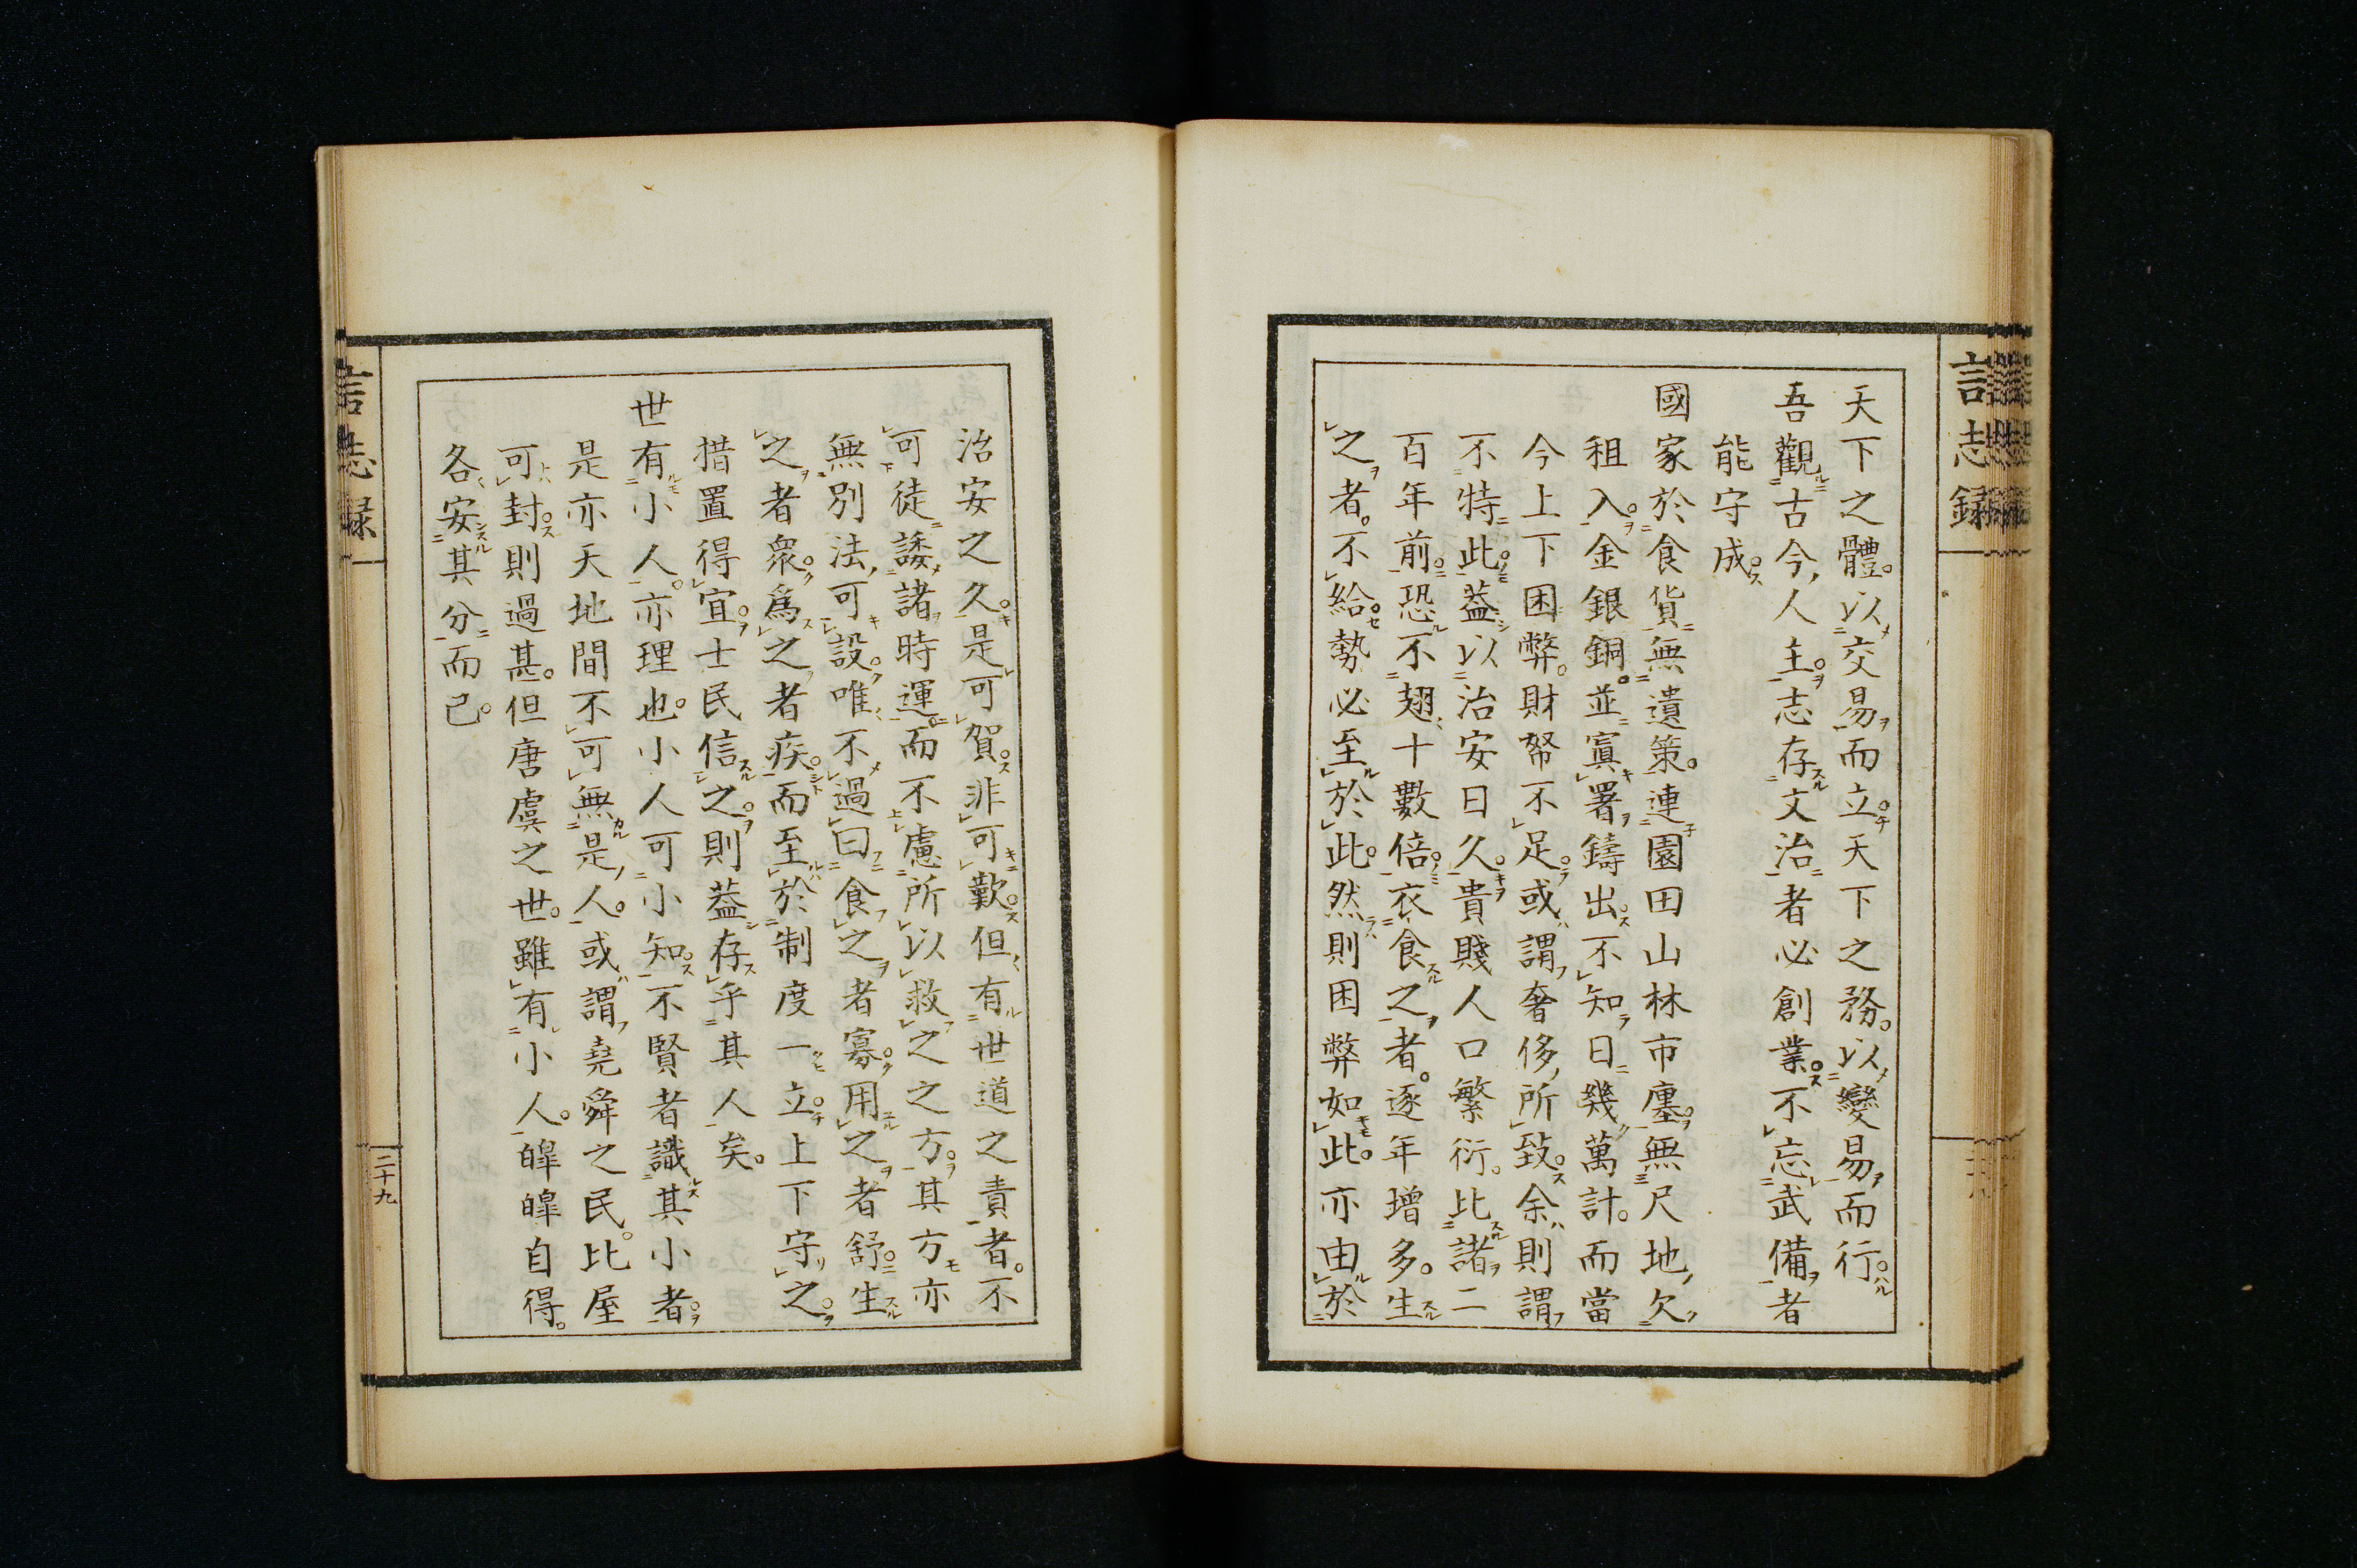 言志録
天下之體。以交易而立。天下之務。以變易而行。
吾觀古今人主。志存文治者必創業。不忘武備者
能守成。
國家於食貨無遺策。連園田山林市廛。無尺地欠
租入。金銀銅。並寘署鑄出。不知日幾萬計。而當
今上下困弊。財帑不足。或謂奢侈所致。余則謂
不特此。葢以治安日久。貴賤人口繁衍。比諸二
百年前。恐不翅十數倍。衣食之者。逐年增多。生
之者。不給。勢必至於此。然則困弊如此。亦由於
治安之久。是可賀。非可歎。但有世道之責者。不
可徒諉諸時運。而不慮所以救之之方。其方亦
無別法可設。唯不過曰食之者寡。用之者舒。生
之者衆。爲之者疾。而至於制度一立。上下守之。
措置得宜。士民信之。則葢存乎其人矣。
世有小人。亦理也。小人可小知。不賢者識其小者。
是亦天地間不可無是人。或謂堯舜之民。比屋
可封。則過甚。但唐虞之世。雖有小人。皥皥自得。
各安其分而已。
言志録
二十九